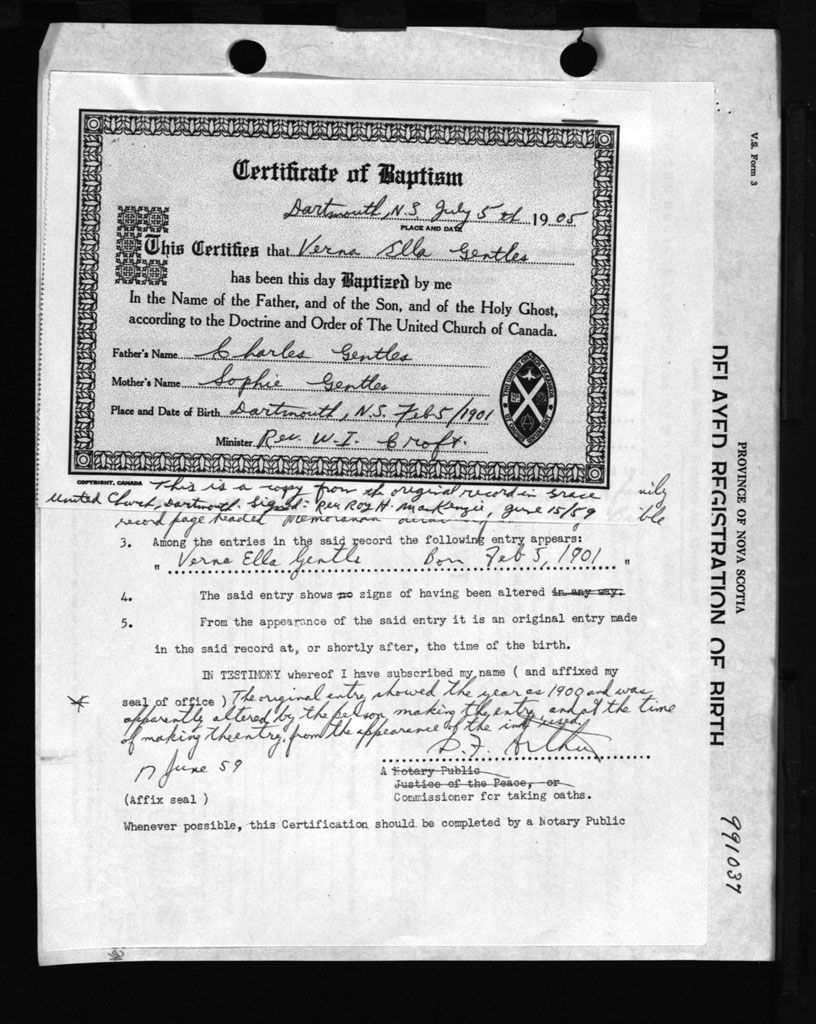 Certificate of Baptism
Dartmouth, N.S. July 5th 1905
PLACE AND DATE
This Certifies that Verna Ella Gentles
has been this day Baptized by me
In the Name of the Father, and of the Son, and of the Holy Ghost,
according to the Doctrine and Order of The United Church of Canada.
Father's Name Charles Gentles
Mother's Name Sophie Gentles
Place and Date of Birth Dartmouth, N.S. Feb 5/1901
Minister Rev. W. I. Croft.
COPYRIGHT, CANADA
This is a copy from the original record in Grace
United Church, Dartmouth. Signed: Rev. Roy H. MacKenzie, June 15/59
record page headed
3. Among the entries in the said record the following entry appears:
" Verna Ella Gentle Born Feb 5, 1901 "
4. The said entry shows no signs of having been altered in any way.
5. From the appearance of the said entry it is an original entry made
in the said record at, or shortly after, the time of the birth.
IN TESTIMONY whereof I have subscribed my name ( and affixed my
seal of office ) The original entry showed the year as 1900 and was
apparently altered by the person making the entry and at the time
of making the entry, from the appearance of the ink used.
17 June 59
A Notary Public
Justice of the Peace, or
(Affix seal ) Commissioner for taking oaths.
Whenever possible, this Certification should be completed by a Notary Public
V.S. Form 3
PROVINCE OF NOVA SCOTIA
DELAYED REGISTRATION OF BIRTH
991037